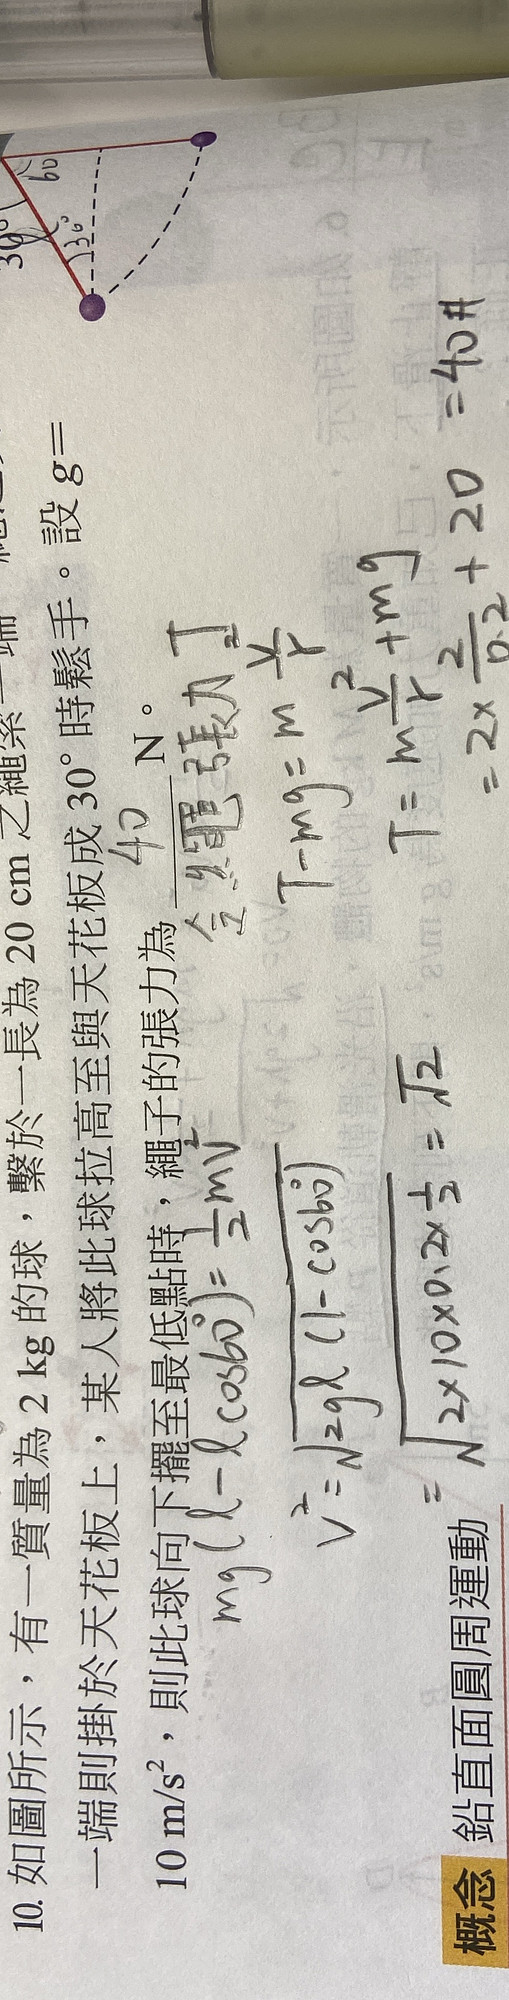 10. 如圖所示,有一質量為 2 kg 的球,繫於一長為 20 cm 之繩
一端則掛於天花板上,某人將此球拉高至與天花板成 30° 時鬆手。設 g=
10 m/s²,則此球向下擺至最低點時,繩子的張力為 40 N。
30°
30°
60
mg(l-lcos60°)=½mv²
v²=√2gl(1-cos60°)
=√2×10×0.2×½=√2
令繩張力T
T-mg=m v²/r
T=m v²/r+mg
=2× 2/0.2 +20 =40#
概念 鉛直面圓周運動